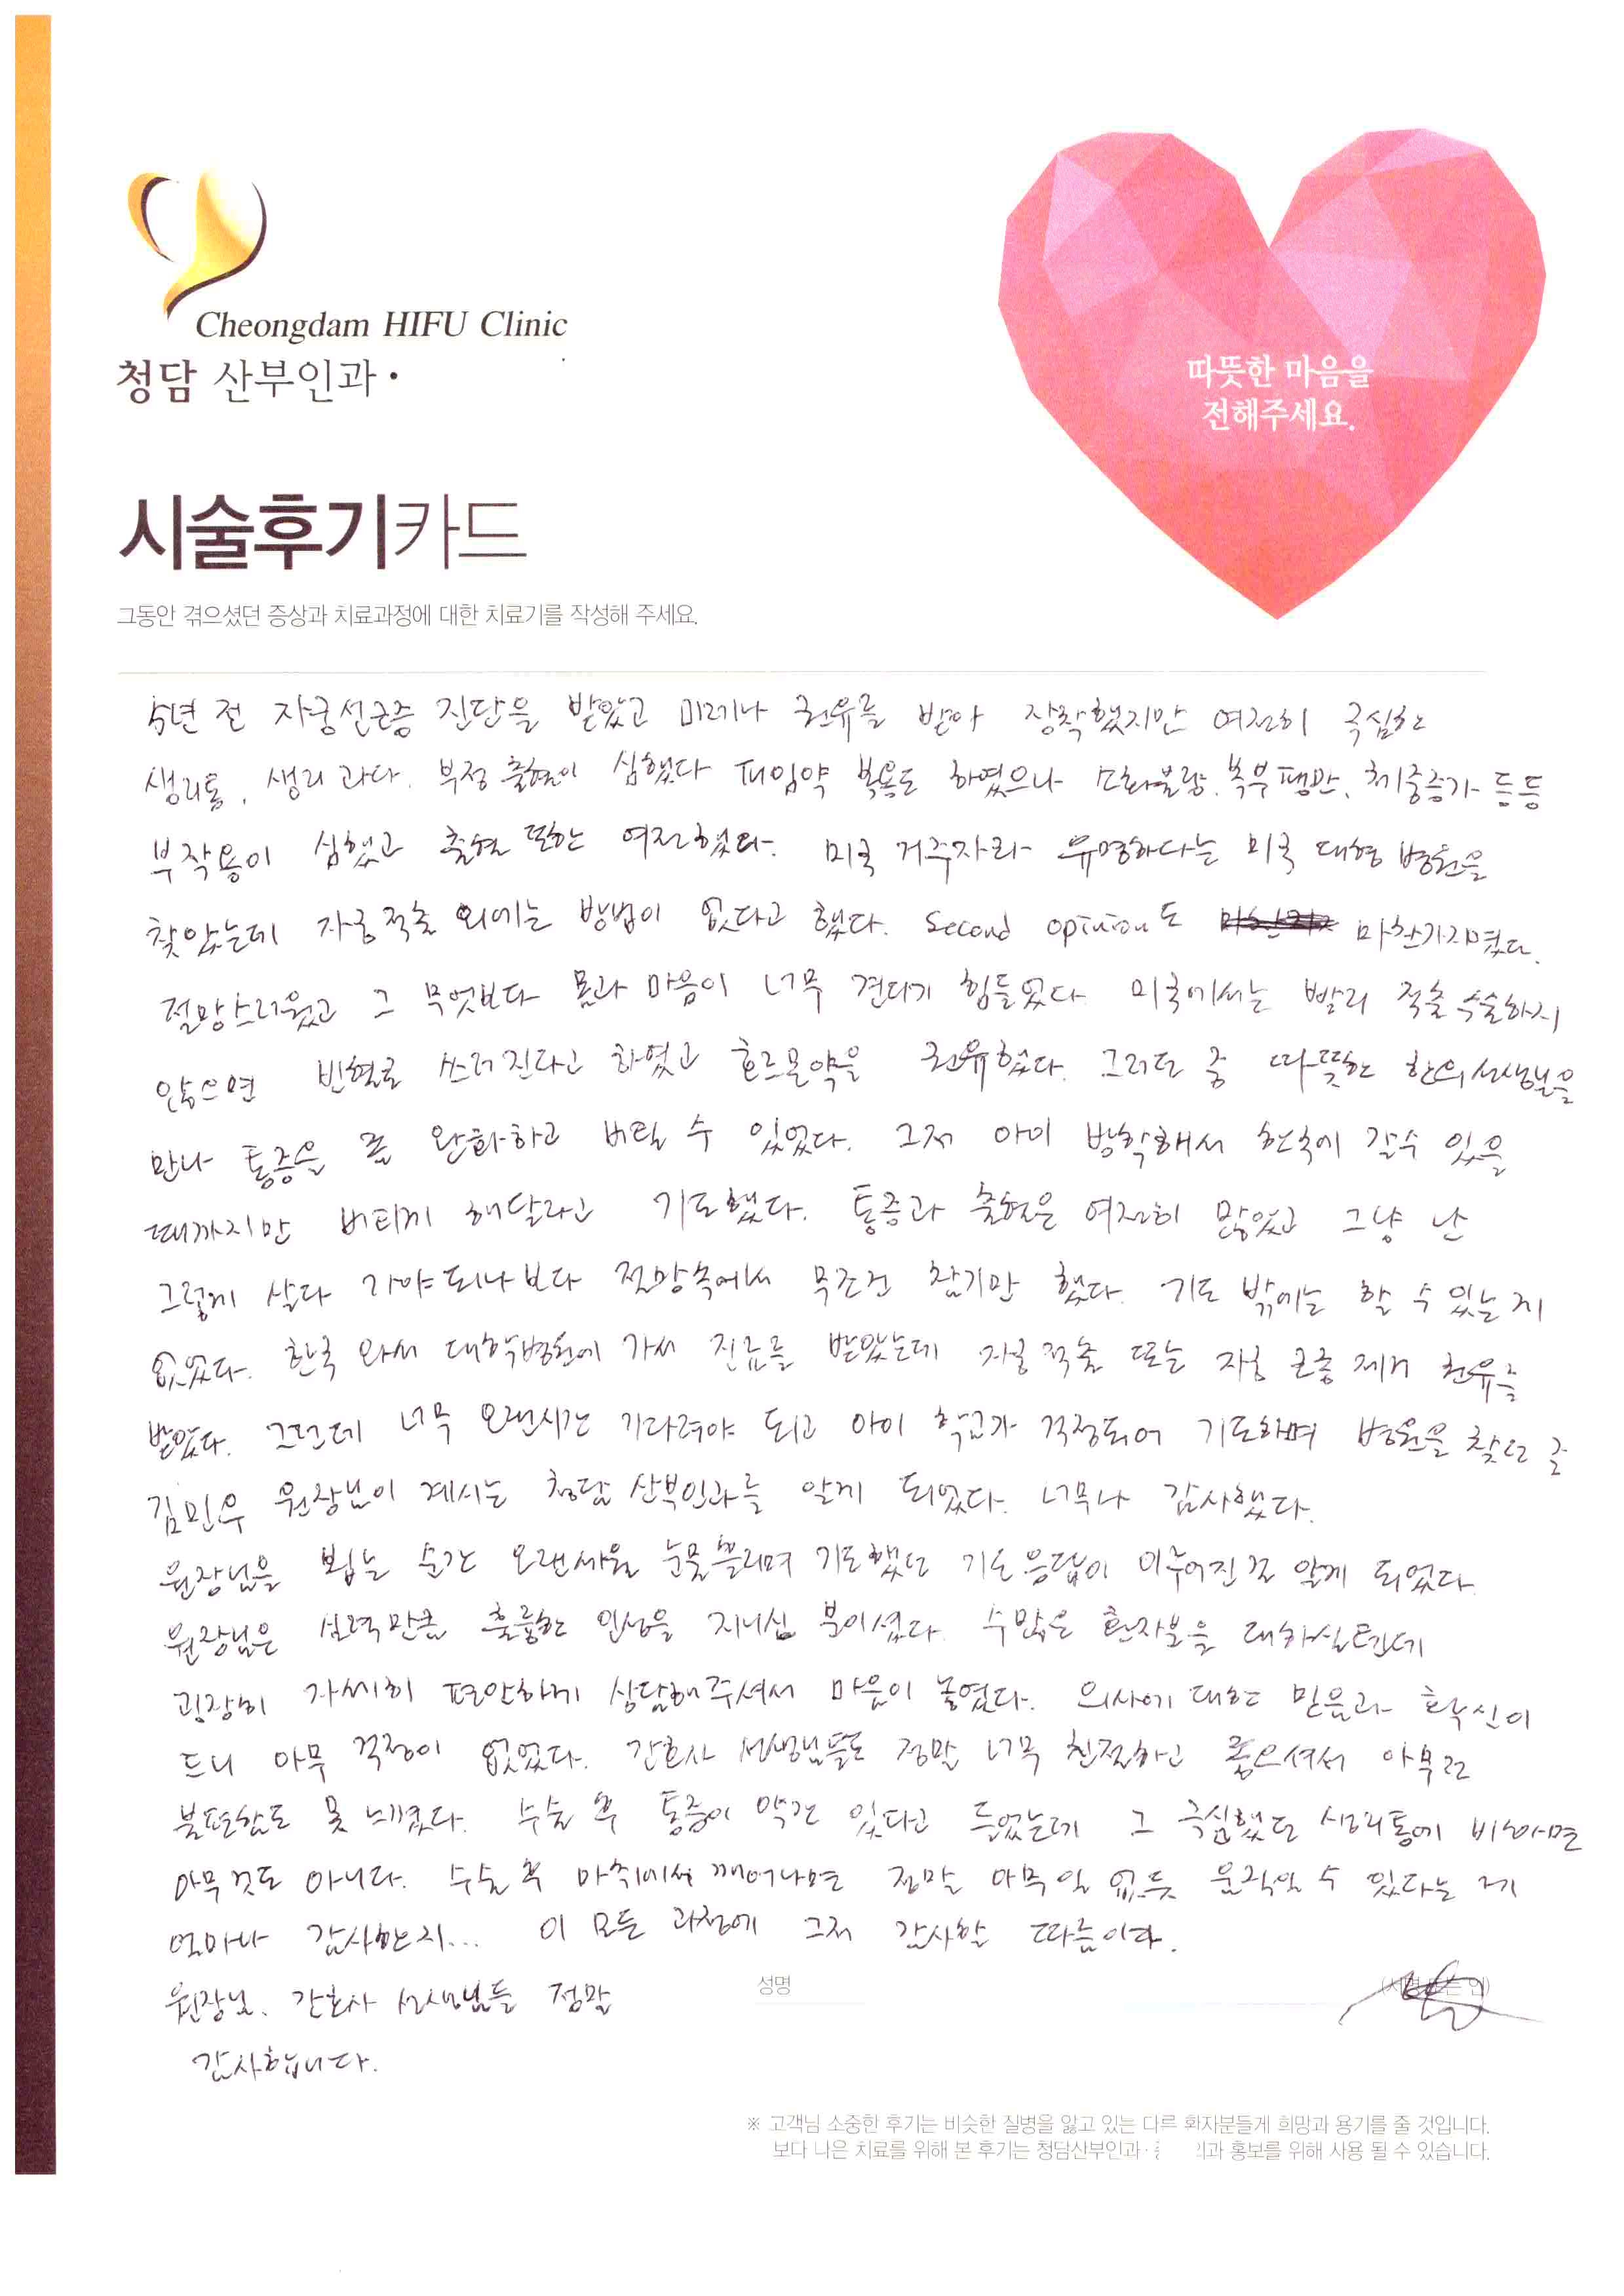 Cheongdam HIFU Clinic
청담 산부인과·
따뜻한 마음을
전해주세요.
시술후기카드
그동안 겪으셨던 증상과 치료과정에 대한 치료기를 작성해 주세요.
5년 전 자궁선근증 진단을 받았고 미레나 권유를 받아 장착했지만 여전히 극심한
생리통, 생리 과다. 부정 출혈이 심했다 피임약 복용도 하였으나 소화불량. 복부 팽만, 체중증가 등등
부작용이 심했고 출혈 또한 여전했다. 미국 거주자라 유명하다는 미국 대형 병원을
찾았는데 자궁적출 외에는 방법이 없다고 했다. Second opinion도 마찬가지였다.
절망스러웠고 그 무엇보다 몸과 마음이 너무 견디기 힘들었다 미국에서는 빨리 적출 수술하지
않으면 빈혈로 쓰러진다고 하였고 호르몬약을 권유했다. 그러던 중 따뜻한 한의 선생님을
만나 통증을 좀 완화하고 버틸 수 있었다. 그저 아이 방학해서 한국에 갈수 있을
때까지만 버티게 해달라고 기도했다. 통증과 출혈은 여전히 많았고 그냥 난
그렇게 살다 가야 되나 보다 절망속에서 무조건 참기만 했다. 기도 밖에는 할 수 있는 게
없었다. 한국 와서 대학병원에 가서 진료를 받았는데 자궁 적출 또는 자궁 근종 제거 권유를
받았다. 그런데 너무 오랜시간 기다려야 되고 아이 학교가 걱정되어 기도하며 병원을 찾던 중
김민우 원장님이 계시는 청담 산부인과를 알게 되었다. 너무나 감사했다.
원장님을 뵙는 순간 오랜세월 눈물뿌리며 기도했던 기도 응답이 이루어진걸 알게 되었다.
원장님은 실력만큼 훌륭한 인성을 지니신 분이셨다. 수많은 환자분을 대하실텐데
굉장히 자세히 편안하게 상담해주셔서 마음이 놓였다. 의사에 대한 믿음과 확신이
드니 아무 걱정이 없었다. 간호사 선생님들도 정말 너무 친절하고 좋으셔서 아무런
불편함도 못 느꼈다. 수술 후 통증이 약간 있다고 들었는데 그 극심했던 생리통에 비하면
아무것도 아니다. 수술 후 마취에서 깨어나면 정말 아무일 없듯 움직일 수 있다는 게
얼마나 감사한지... 이 모든 과정에 그저 감사할 따름이다.
원장님, 간호사 선생님들 정말
감사합니다.
성명
※ 고객님 소중한 후기는 비슷한 질병을 앓고 있는 다른 환자분들께 희망과 용기를 줄 것입니다.
보다 나은 치료를 위해 본 후기는 청담산부인과· 의과 홍보를 위해 사용 될 수 있습니다.